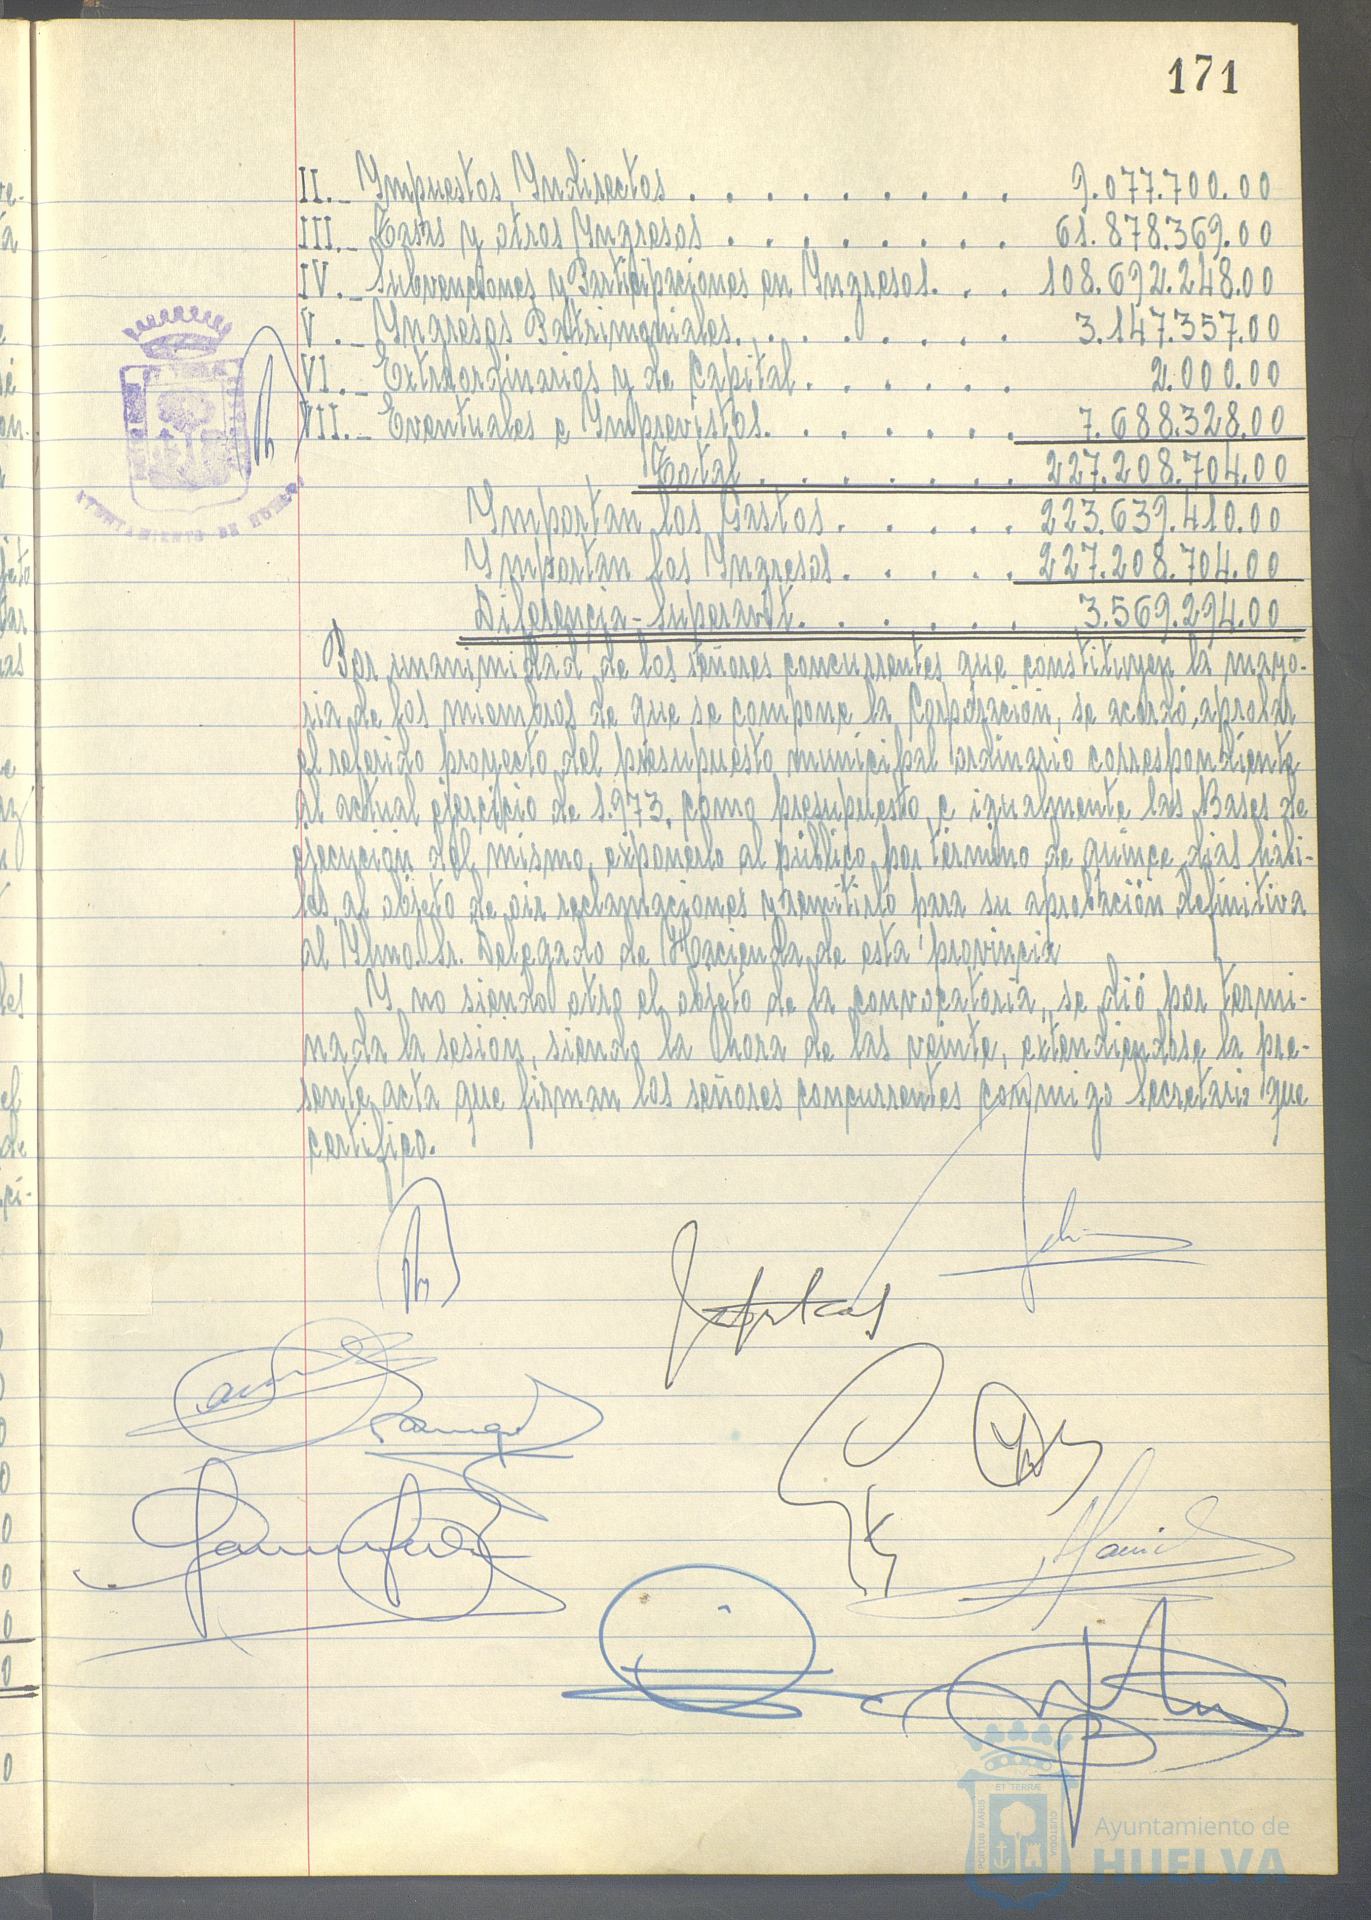 171
II.- Impuestos Indirectos . . . . . . . . . 9.077.700.00
III.- Tasas y otros Ingresos . . . . . . . . 61.878.369.00
IV.- Subvenciones y Participaciones en Ingresos. . . 108.692.248.00
V.- Ingresos Patrimoniales. . . . . . . 3.147.357.00
VI.- Extraordinarios y de Capital. . . . . . 2.000.00
VII.- Eventuales e Imprevistos. . . . . . . 7.688.328.00
Total . . . . . . . 227.208.704.00
Importan los Gastos. . . . . 223.639.410.00
Importan los Ingresos. . . . . 227.208.704.00
Diferencia-Superavit. . . . . . 3.569.294.00
Por unanimidad de los señores concurrentes que constituyen la mayo-
ria de los miembros de que se compone la Corporación, se acordó, aprobar
el referido proyecto del presupuesto municipal ordinario correspondiente
al actual ejercicio de 1.973, como presupuesto, e igualmente las Bases de
ejecución del mismo, exponerlo al público por término de quince dias hábi-
les, al objeto de oir reclamaciones y remitirlo para su aprobación definitiva
al Ylmo. Sr. Delegado de Hacienda de esta provincia
Y no siendo otro el objeto de la convocatoria, se dió por termi-
nada la sesión, siendo la hora de las veinte, extendiendose la pre-
sente acta que firman los señores concurrentes conmigo Secretario que
certifico.
AYUNTAMIENTO DE HUELVA
PORTUS MARIS
ET TERRÆ
CUSTODIA
Ayuntamiento de
HUELVA